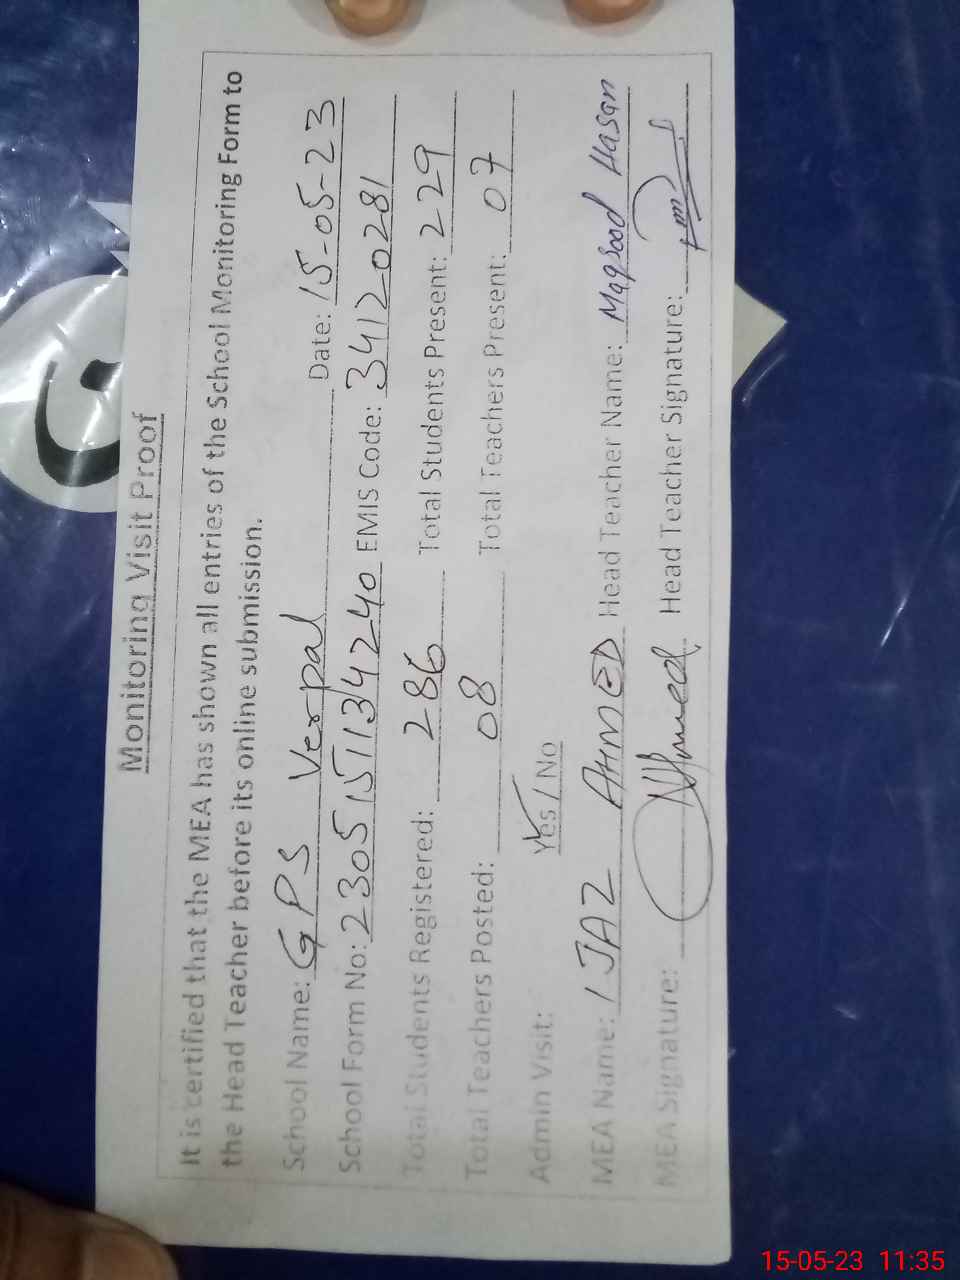 Monitoring Visit Proof
It is certified that the MEA has shown all entries of the School Monitoring Form to
the Head Teacher before its online submission.
School Name: GPS Verpal Date: 15-05-23
School Form No: 2305151134240 EMIS Code: 34120281
Total Students Registered: 286 Total Students Present: 229
Total Teachers Posted: 08 Total Teachers Present: 07
Admin Visit: Yes / No
MEA Name: IJAZ AHMED Head Teacher Name: Maqsood Hasan
MEA Signature: Ahmed Head Teacher Signature:
15-05-23 11:35